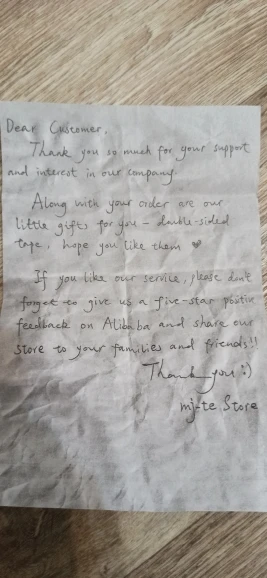 Dear Customer,
Thank you so much for your support
and interest in our company.
Along with your order are our
little gifts for you – double-sided
tape, hope you like them ♥
If you like our service, please don't
forget to give us a five-star positive
feedback on Alibaba and share our
store to your families and friends!!
Thank you :)
mj-te Store